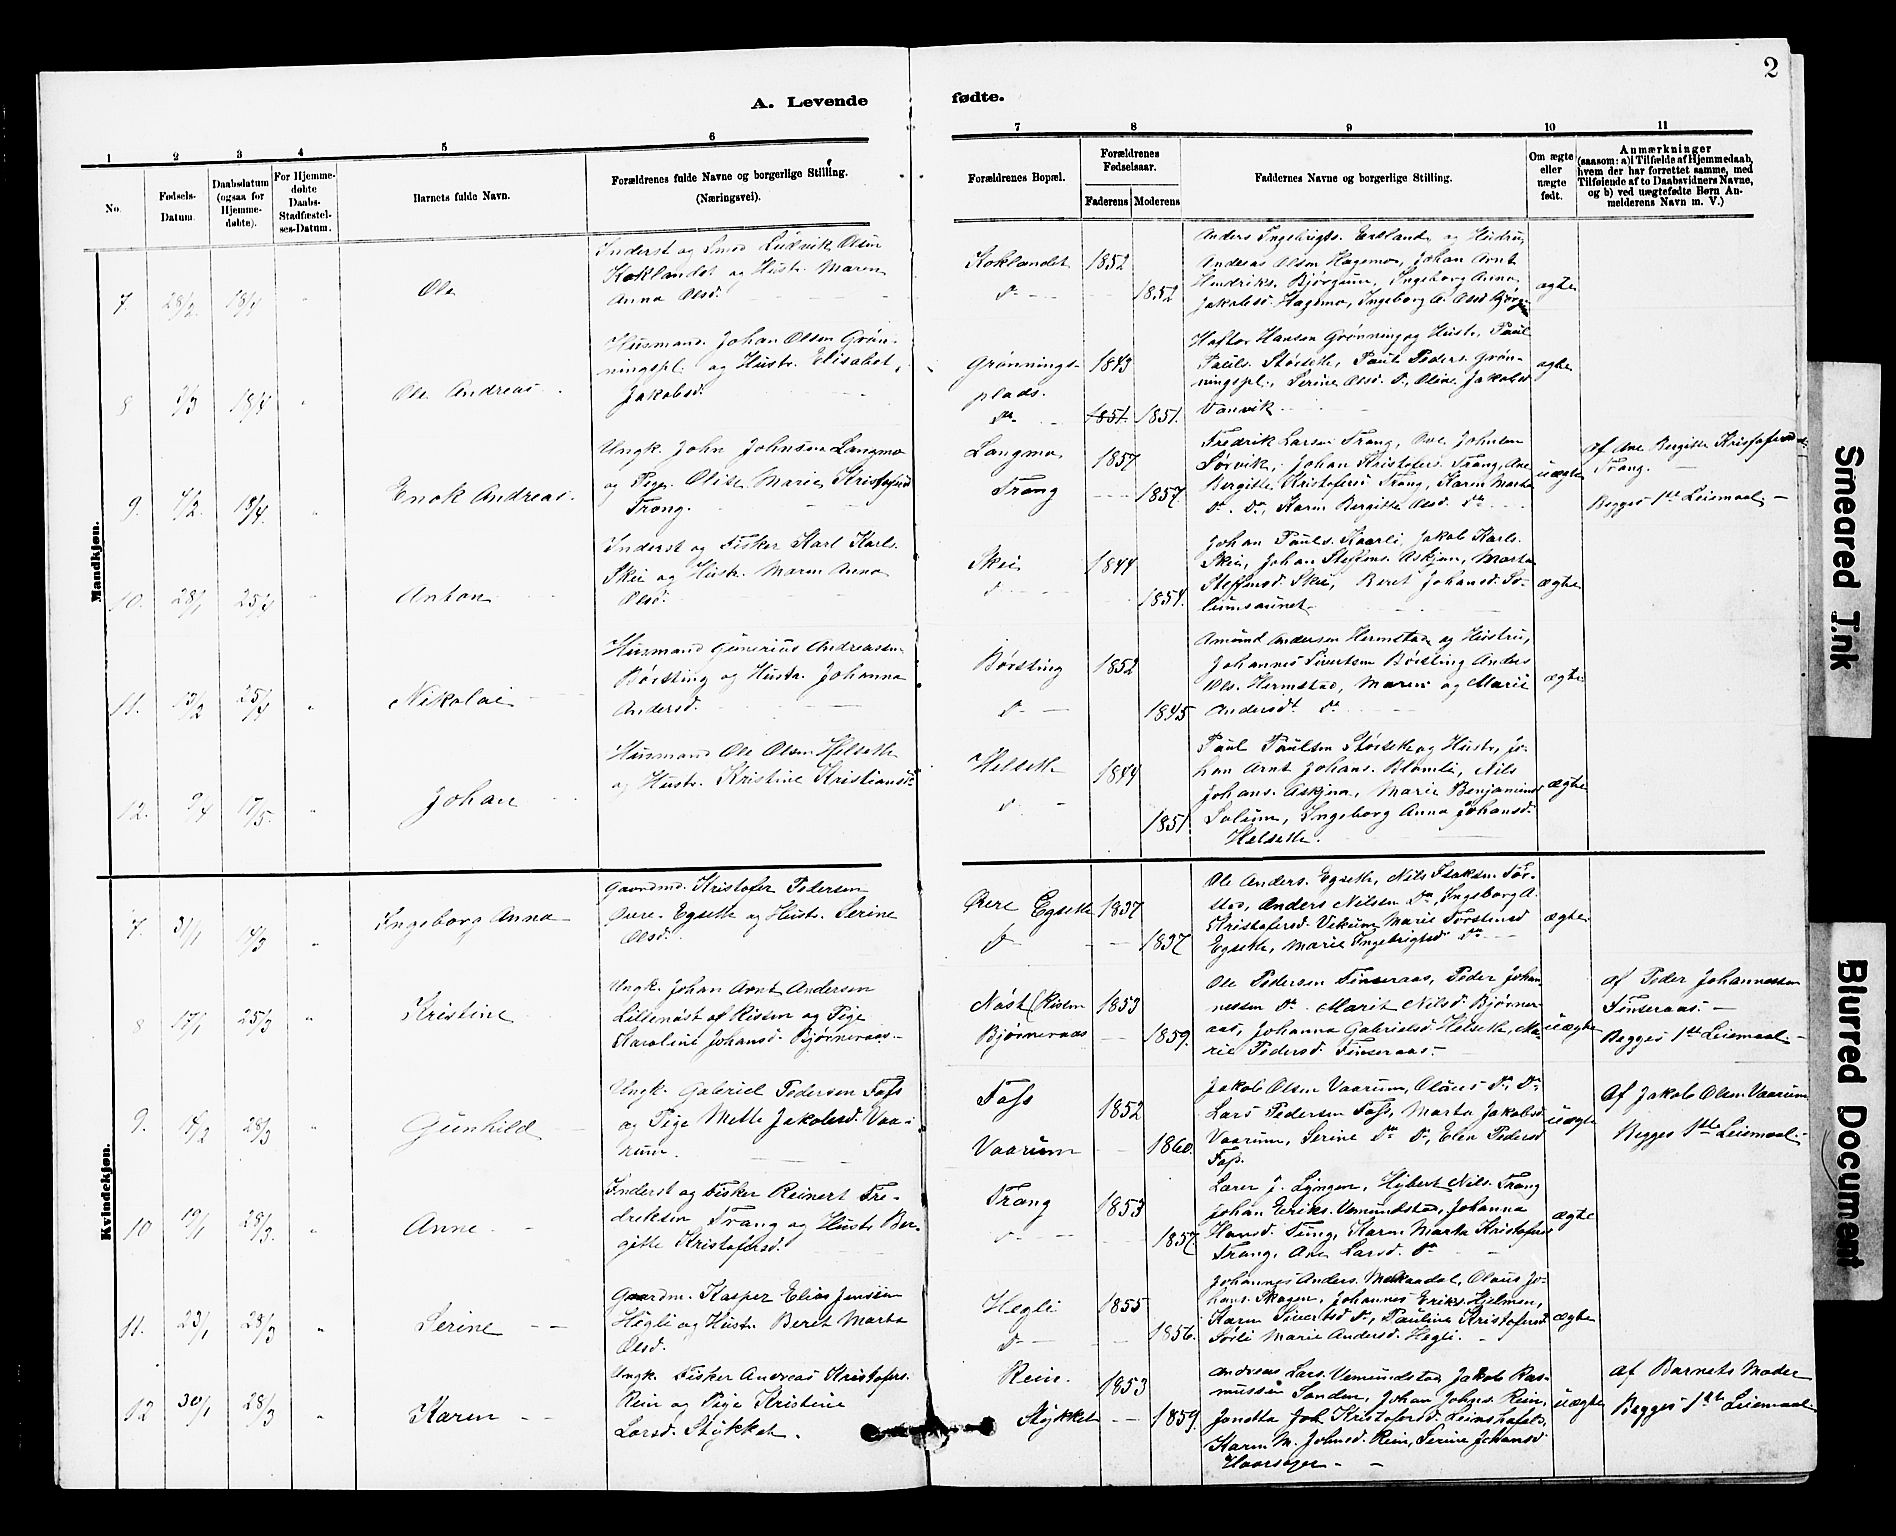 2
A. Levende fødte.
1 2 3 4 5 6 7 8 9 10 11
No.
Fødsels-Datum.
Daabsdatum (ogsaa for Hjemmedøbte).
For Hjemmedøbte Daabs-Stadfæstelses-Datum.
Barnets fulde Navn.
Forældrenes fulde Navne og borgerlige Stilling.
(Næringsvei).
Forældrenes Bopæl.
Forældrenes Fødselsaar.
Faderens Moderens
Faddernes Navne og borgerlige Stilling.
Om ægte eller uægte født.
Anmærkninger
(saasom: a) i Tilfælde af Hjemmedaab,
hvem der har forrettet samme, med
Tilføiende af to Daabsvidners Navne,
og b) ved uægtefødte Børn An-
melderens Navn m. V.)
Mandkjøn.
7. 28/2. 18/4 " Ole
Inderst og Smed Ludvik Olsen
Koklandet og Hustr. Maren
Anna Olsd.
Koklandet 1852
D° 1852
Anders Ingebrigts. Erslands og Hustru,
Andreas Olsen Hagemo, Johan Arnt
Hendriks. Bjørgum, Ingeborg Anna
Jakobsd. Hagemo, Ingeborg A. Olsd.
ægte
8 18/4 " Ole Andreas
Husmand Johan Olsen Grøn-
ningspl. og Hustr. Elisabet
Jakobsd.
Grønnings-
plads. 1843
D° 1851. 1851.
Haftor Hansen Grønning og Hustr., Paul
Pauls. Størseth, Paul Peders. Grøn-
ningspl., Serine Olsd. D°, Oline Jakobsd.
Vanvik
ægte
9. 18/4. " Enok Andreas
Ungk. John Johnsen Langmo
og Pige Oline Marie Kristofersd.
Trang.
Langmo 1857
Trang 1857.
Fredrik Larsen Trang, Ole Johnsen
Sørvik, Johan Kristofers. Trang, Ane
Bergitte Kristofersd. Trang, Karen Marta
D° D°, Karen Bergitte Olsd. D°
uægte
Af Ane Bergitte Kristofersd.
Trang.
Begges 1ste Leiemaal
10. 28/1 25/4 " Anton
Inderst og Fisker Karl Karls.
Skei og Hustr. Maren Anna
Olsd.
Skei 1844
D° 1854.
Johan Pauls. Kaarli, Jakob Karls.
Skei, Johan Steffens. Askjem, Marta
Steffensd. Skei, Beret Johansd. So-
lumsaunet
ægte
11. 13/2 25/4 " Nikolai
Husmand Gunerius Andreassen
Børsting og Hustr. Johanna
Andersd.
Børsting 1852
D° 1845
Amund Andersen Hermstad og Hustru,
Johannes Sivertsen Børsting, Anders
Ols. Hermstad, Maren og Marie
Andersdt. D°
ægte
12. 9/4 17/5. " Johan
Husmand Ole Olsen Helseth
og Hustr. Kristine Kristiansd.
Helseth 1844
D° 1851
Paul Paulsen Størseth og Hustr., Jo-
han Arnt Johans. Blomli, Nils
Johans. Askjem, Marie Benjaminsd.
Solum, Ingeborg Anna Johansd.
Helseth.
ægte
Kvindekjøn.
7. 31/1 14/3 " Ingeborg Anna
Gaardmd. Kristofer Pedersen
Øvre Egseth og Hustr. Serine
Olsd.
Øvre Egseth 1837
D° 1837
Ole Anders. Egseth, Nils Isaksen Tør-
stad, Anders Nilsen D°, Ingeborg A.
Kristofersd. Vikum, Marie Torstensd.
Egseth, Marie Ingebrigtsd. D°
ægte
8 17/1 25/3 " Kristine
Ungk. Johan Arnt Andersen
Lillenøst af Rissen og Pige
Karoline Johansd. Bjørneraas
Nøst (Rissen 1853
Bjørneraas 1859.
Ole Pedersen Finseraas, Peder Johan-
nessen D°. Marit Nilsd. Bjørner-
aas, Johanna Gabrielsd. Helseth, Ma-
rie Pedersd. Finseraas.
uægte
Af Peder Johannessen
Finseraas.
Begges 1ste Leiemaal.
9. 14/2 28/3 " Gunhild
Ungk. Gabriel Pedersen Foss
og Pige Mette Jakobsd. Vaa-
rum.
Foss 1852
Vaarum 1860.
Jakob Olsen Vaarum, Olaus D°, D°
Lars Pedersen Foss, Marta Jakobsd.
Vaarum, Serine D° D°, Elen Pedersd.
Foss.
uægte
Af Jakob Olsen Vaarum
Begges 1ste Leiemaal.
10 19/1 28/3. " Anne
Inderst og Fisker Reinert Fre-
driksen Trang og Hustr. Ber-
gitte Kristofersd.
Trang 1853
D° 1857.
Lærer J. Lyngen, Hybert Nils. Trang
Johan Eriks. Vemundstad, Johanna
Hansd. Tung, Karen Marta Kristofersd.
Trang, Ane Larsd. D°
ægte
11. 23/1 28/3 " Serine
Gaardm. Kasper Elias Jensen
Hegli og Hustr. Beret Marta
Olsd.
Hegli 1855
D° 1856.
Johannes Anders. Mækadal, Olaus Jo-
hans. Skogen, Johannes Eriks. Hjelmen,
Karen Sivertsd. D°, Pauline Kristofersd.
Sørli, Marie Andersd. Hegli.
ægte
12 30/1 28/3 " Karen
Ungk. Fisker Andreas Kristofers.
Rein og Pige Kristine
Larsd. Stykket.
Rein. 1853
Stykket 1859.
Andreas Lars. Vemundstad, Jakob Ras-
mussen Sanden, Johan Johns. Rein,
Jonetta Joh. Kristofersd. Leinshafela,
Karen M. Johnsd. Rein, Serine Johansd.
Haarsager
uægte
Af Barnets Moder
Begges 1ste Leiemaal
Smeared Ink
Blurred Document